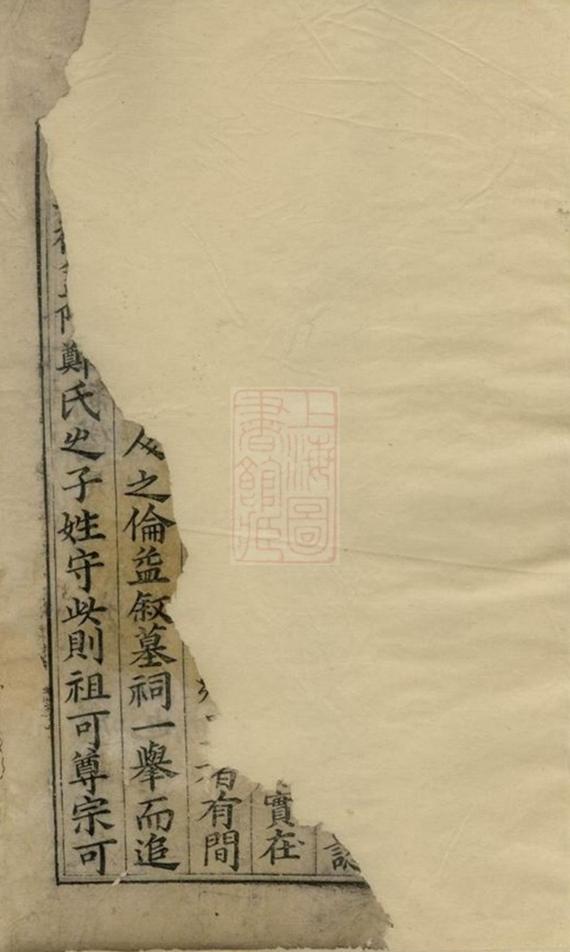 實在
有間
之倫益敘墓祠一舉而追
鄭氏之子姓守此則祖可尊宗可
上海圖書館藏